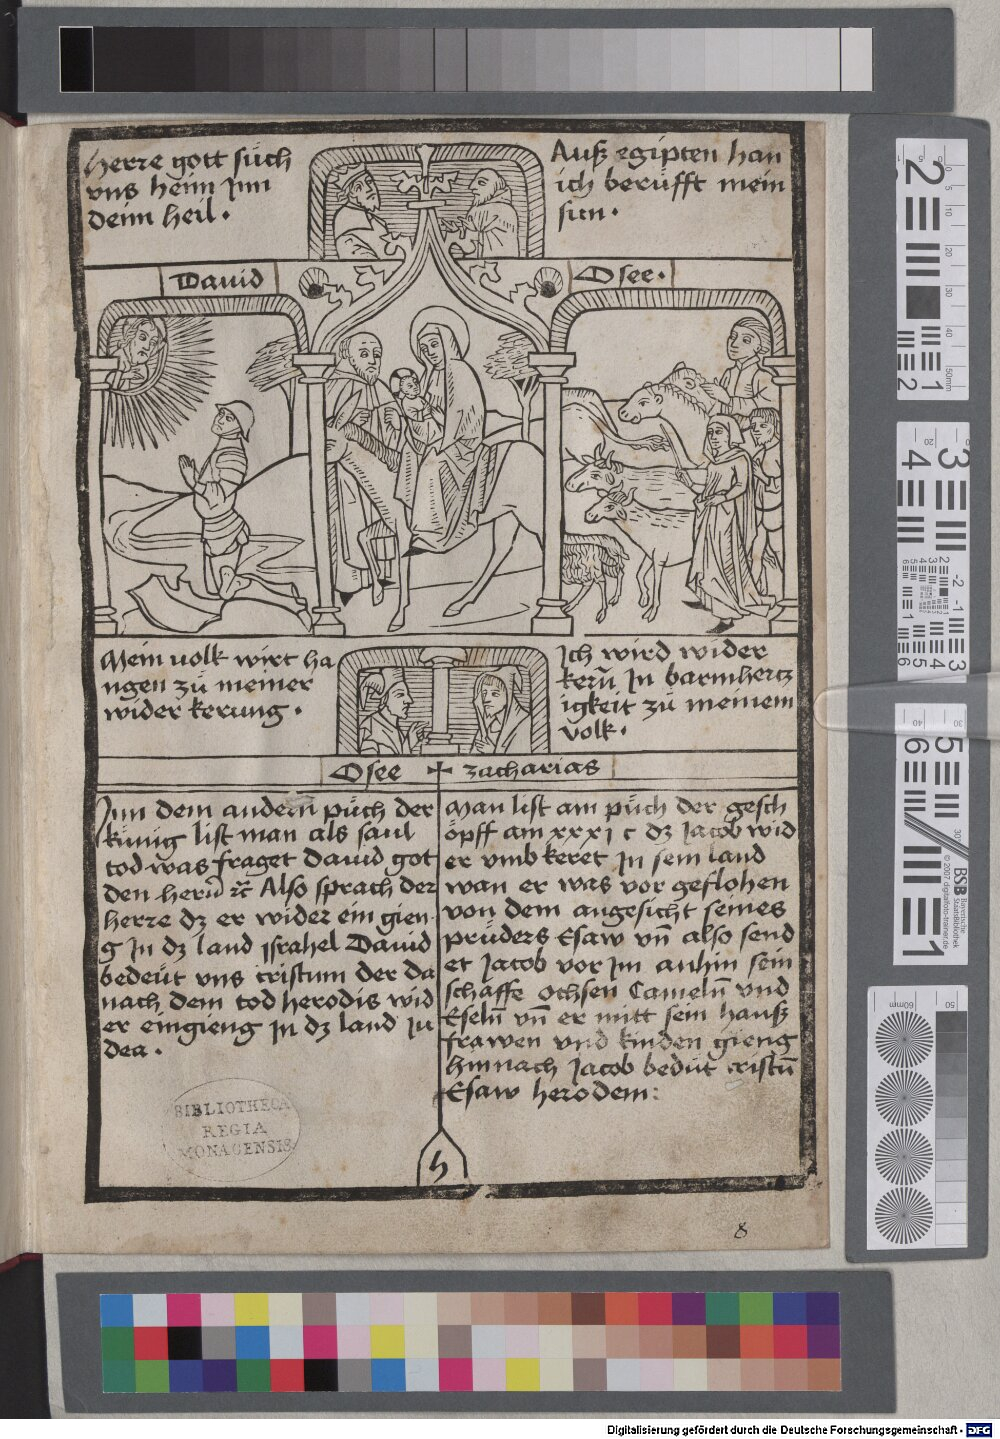 Herre gott süch
vns heim Inn
deim heil.
Auß egipten han
ich berüfft mein
sun.
Dauid
Osee.
Mein volk wirt ha
ngen zü meiner
wider kerung.
Ich wird wider
kerñ In barmhertz
igkeit zü meinem
volk.
Osee + zacharias
Inn dem andern püch der
künig list man als saul
tod was fraget Dauid got
den herñ ⁊c̄ Also sprach der
herre dz er wider ein gien
g In dz land israhel Dauid
bedeüt vns cristum der da
nach dem tod herodis wid
er eingieng In dz land Ju
dea.
Man list am püch der gesch
öpff am xxxi c dz Jacob wid
er vmb keret In sein land
wan er was vor geflohen
von dem angesicht seines
prüders Esaw vñ also send
et Jacob vor Im anhin sein
schäffe Ochsen Camelñ vnd
Eselñ vñ er mitt sein hauß
frawen vnd kinden gieng
hinnach Jacob bedüt cristũ
Esaw herodem:
BIBLIOTHECA
REGIA
MONACENSIS
h
8
BSB Bayerische StaatsBibliothek
© 2007 digitalfoto-trainer.de
Digitalisierung gefördert durch die Deutsche Forschungsgemeinschaft - DFG